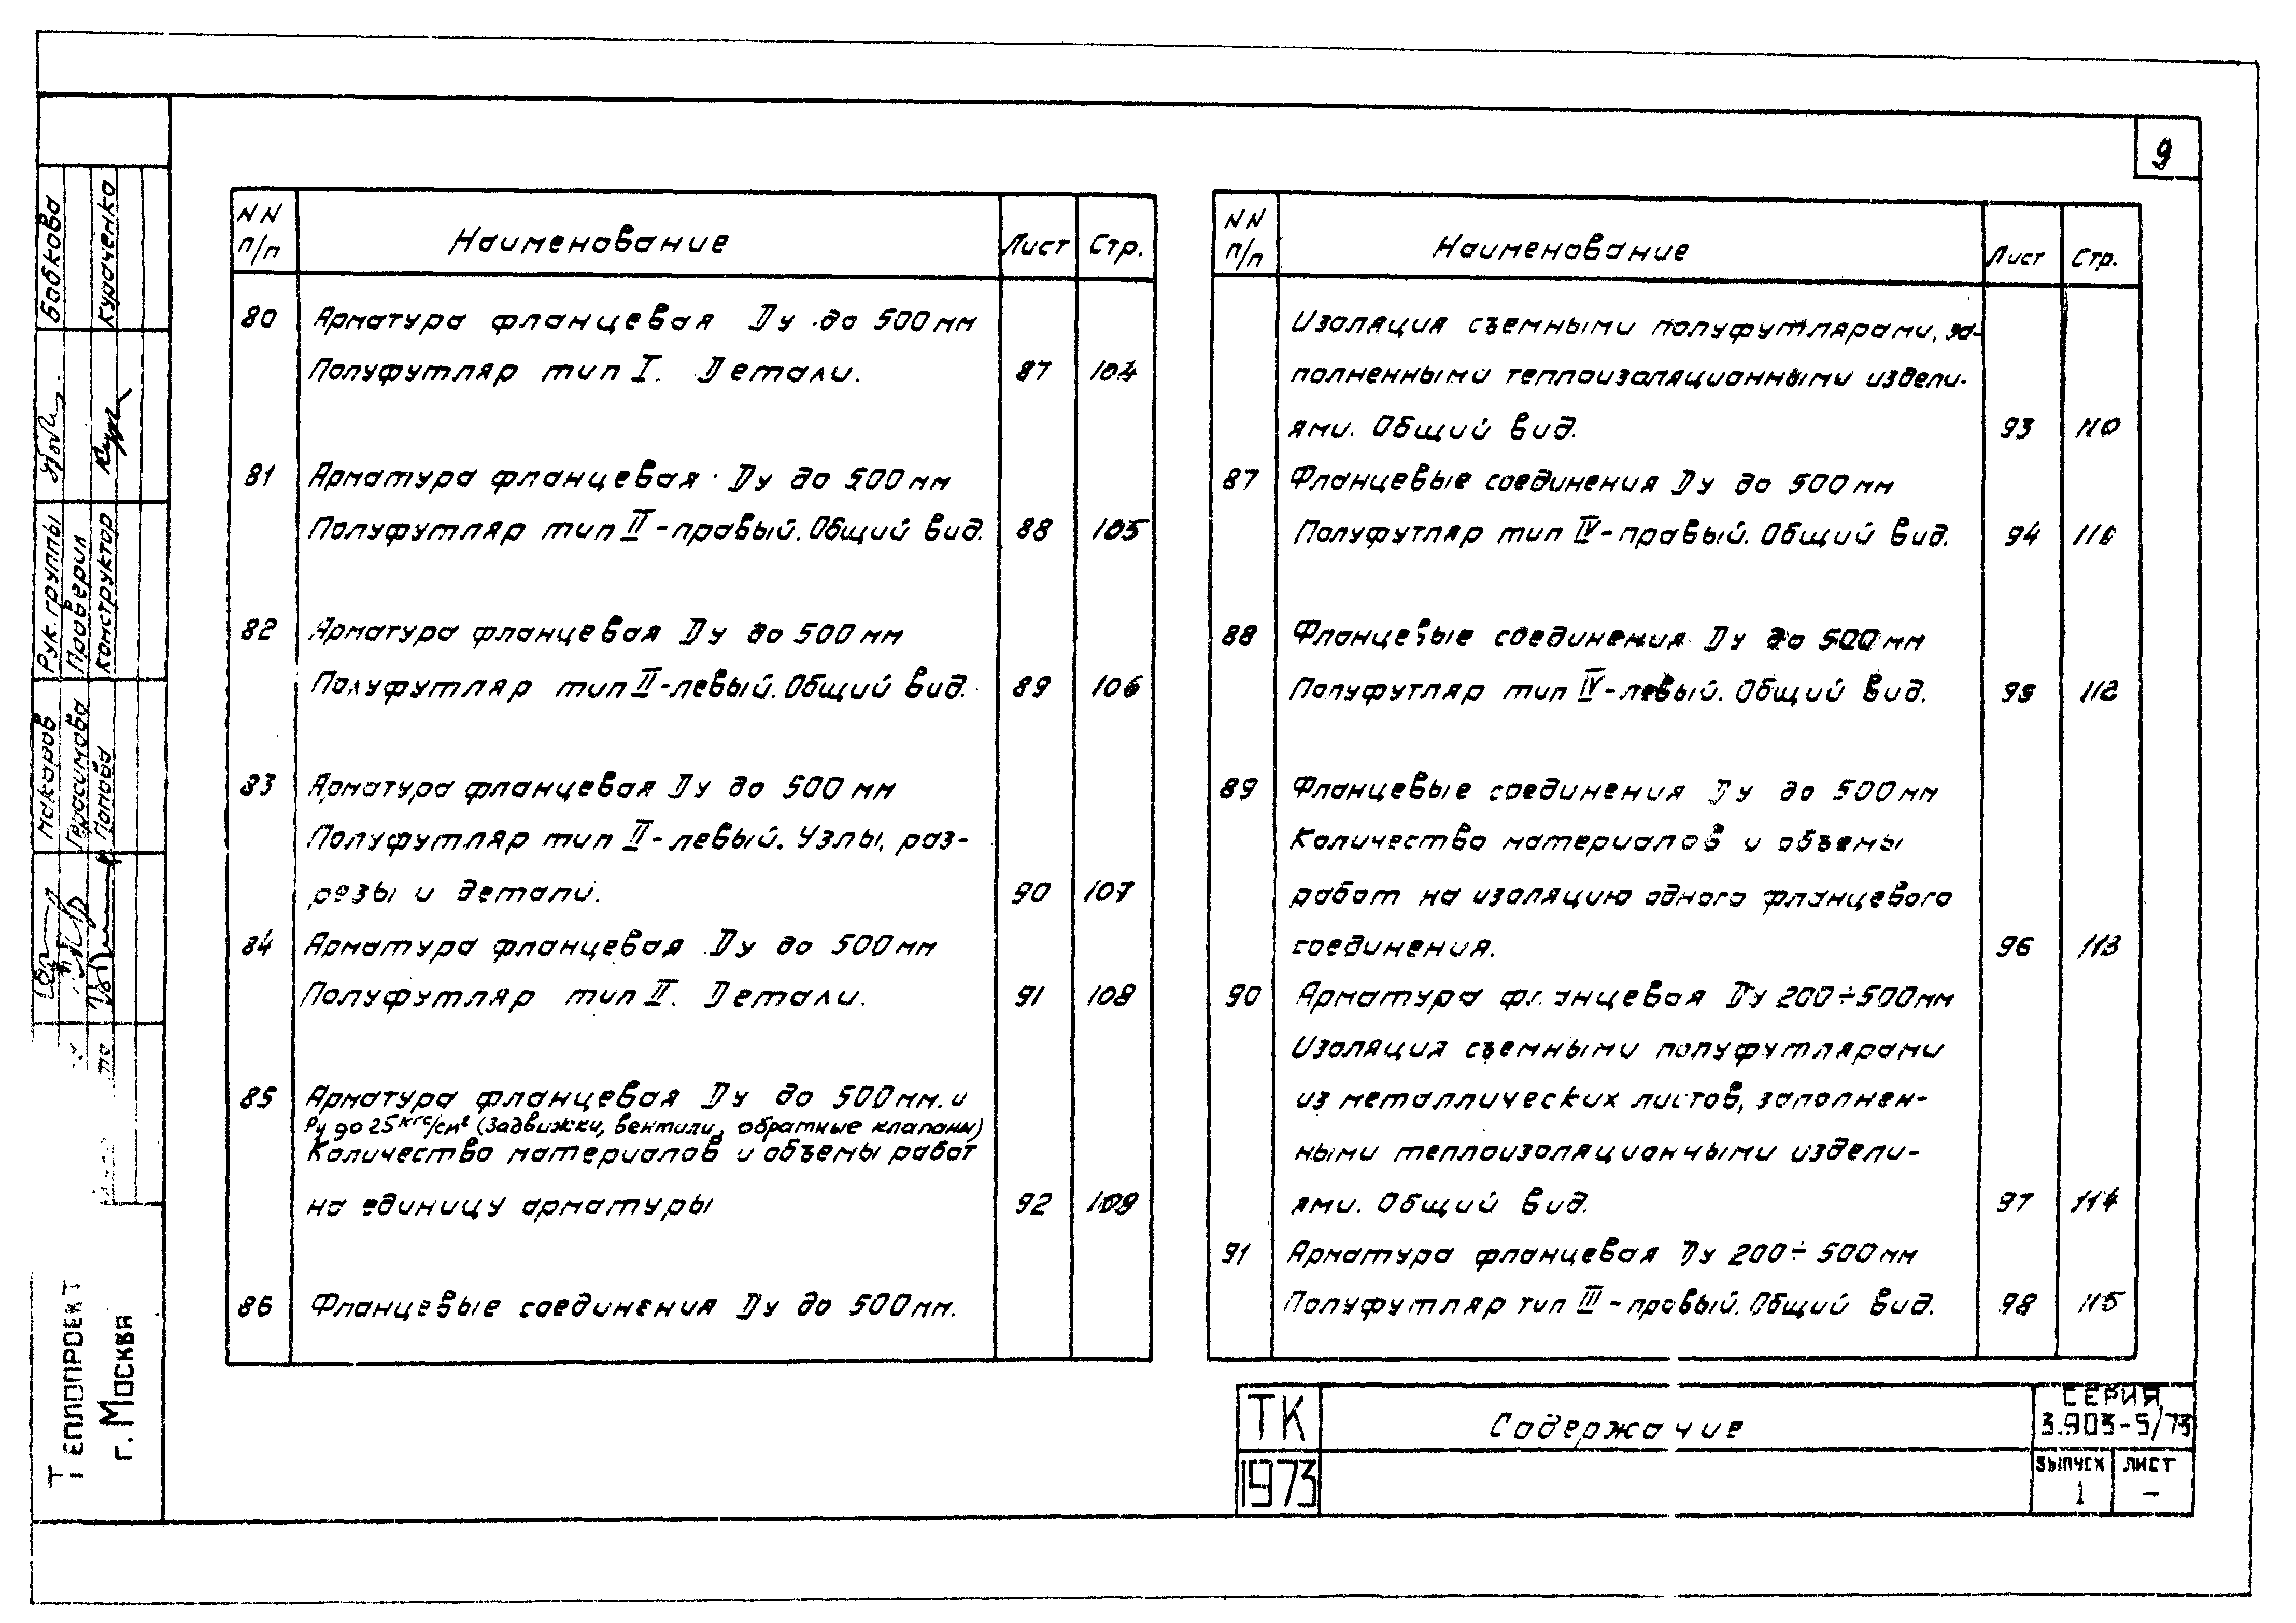 9
NN п/п Наименование Лист Стр.
80 Арматура фланцевая Dу до 500 мм
Полуфутляр тип I. Детали. 87 104
81 Арматура фланцевая Dу до 500 мм
Полуфутляр тип II-правый. Общий вид. 88 105
82 Арматура фланцевая Dу до 500 мм
Полуфутляр тип II-левый. Общий вид. 89 106
83 Арматура фланцевая Dу до 500 мм
Полуфутляр тип II-левый. Узлы, раз-
резы и детали. 90 107
84 Арматура фланцевая Dу до 500 мм
Полуфутляр тип II. Детали. 91 108
85 Арматура фланцевая Dу до 500 мм. и
Ру до 25 кгс/см² (задвижки, вентили, обратные клапаны)
Количество материалов и объемы работ
на единицу арматуры 92 109
86 Фланцевые соединения Dу до 500 мм.
NN п/п Наименование Лист Стр.
Изоляция съемными полуфутлярами, за-
полненными теплоизоляционными издели-
ями. Общий вид. 93 110
87 Фланцевые соединения Dу до 500 мм
Полуфутляр тип IV-правый. Общий вид. 94
88 Фланцевые соединения Dу до 500 мм
Полуфутляр тип IV-левый. Общий вид. 95 112
89 Фланцевые соединения Dу до 500 мм
Количество материалов и объемы
работ на изоляцию одного фланцевого
соединения. 96 113
90 Арматура фланцевая Dу 200÷500 мм
Изоляция съемными полуфутлярами
из металлических листов, заполнен-
ными теплоизоляционными издели-
ями. Общий вид. 97 114
91 Арматура фланцевая Dу 200÷500 мм
Полуфутляр тип III-правый. Общий вид. 98 115
ТК
1973
Содержание
СЕРИЯ
3.903-5/73
ВЫПУСК ЛИСТ
1 —
Бабкова
Кураченко
Рук. группы
Проверил
Конструктор
Макаров
Герасимова
Попова
ТЕПЛОПРОЕКТ
г. МОСКВА